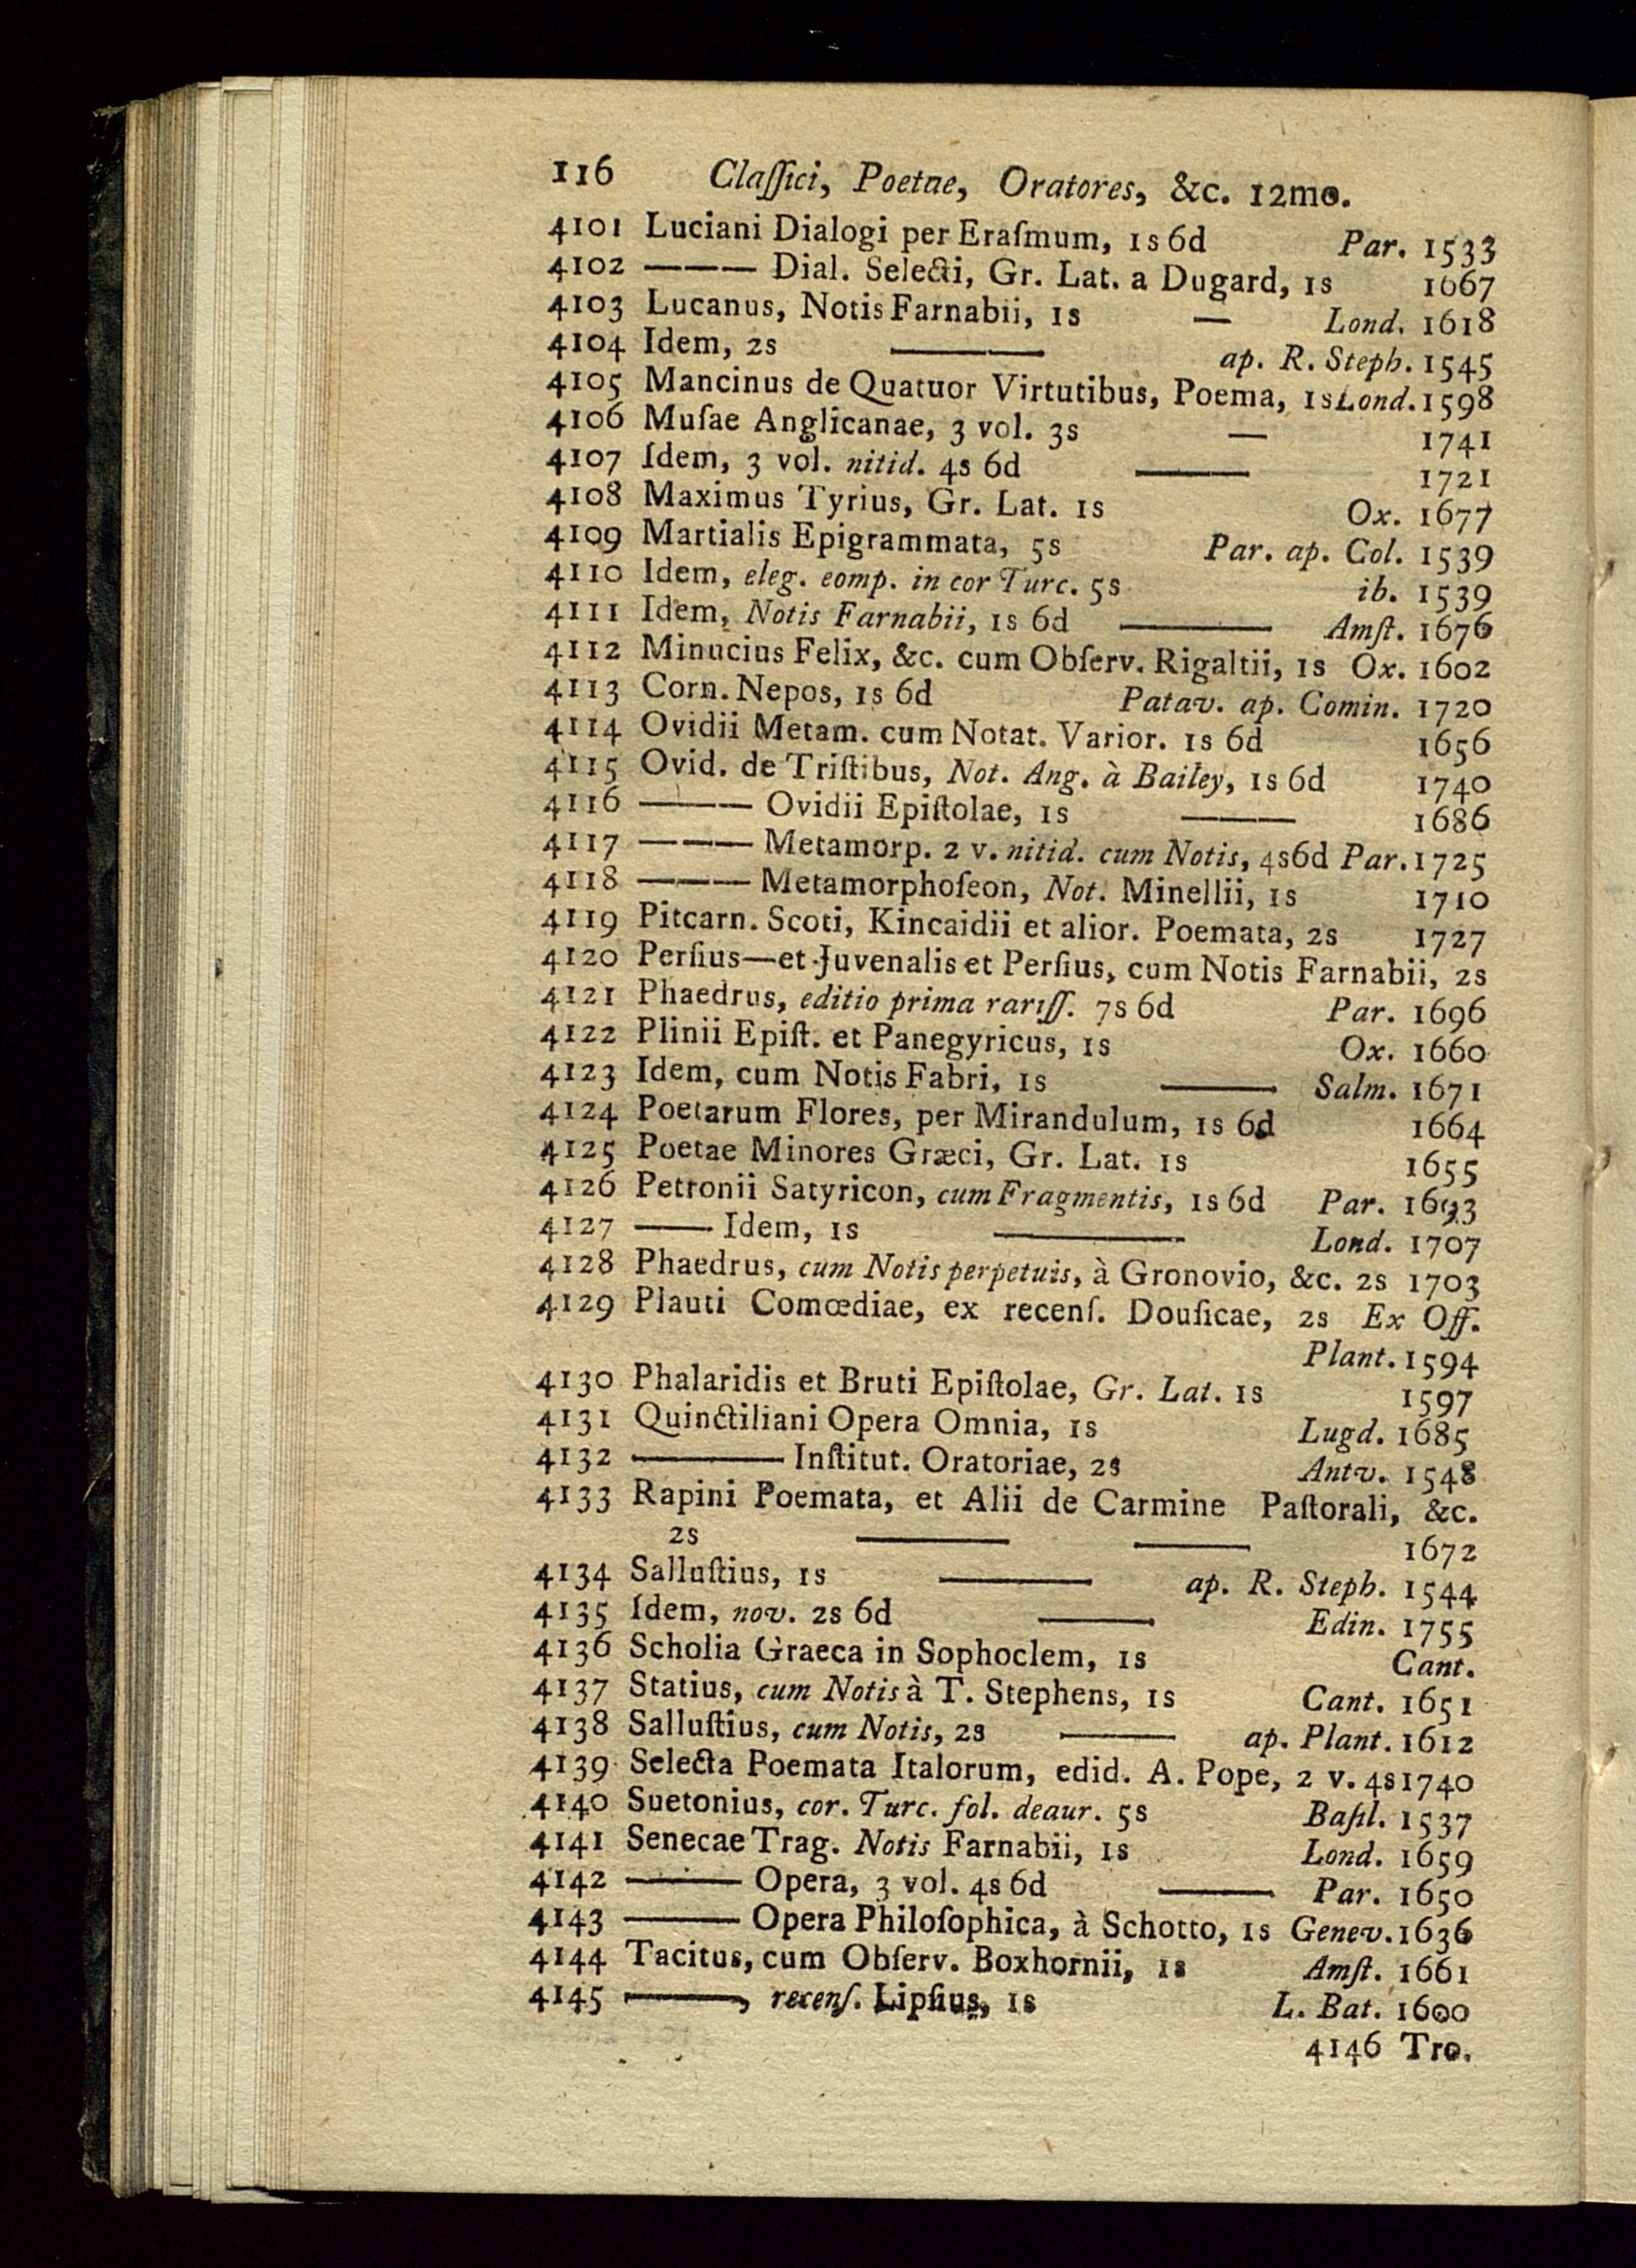 116 Claſſici, Poetae, Oratores, &c. 12mo.
4101 Luciani Dialogi per Eraſmum, 1s 6d Par. 1533
4102 ——— Dial. Selecti, Gr. Lat. a Dugard, 1s 1667
4103 Lucanus, Notis Farnabii, 1s — Lond. 1618
4104 Idem, 2s ——— ap. R. Steph. 1545
4105 Mancinus de Quatuor Virtutibus, Poema, 1s Lond. 1598
4106 Muſae Anglicanae, 3 vol. 3s — 1741
4107 Idem, 3 vol. nitid. 4s 6d ——— 1721
4108 Maximus Tyrius, Gr. Lat. 1s Ox. 1677
4109 Martialis Epigrammata, 5s Par. ap. Col. 1539
4110 Idem, eleg. eomp. in cor Turc. 5s ib. 1539
4111 Idem, Notis Farnabii, 1s 6d ——— Amſt. 1676
4112 Minucius Felix, &c. cum Obſerv. Rigaltii, 1s Ox. 1602
4113 Corn. Nepos, 1s 6d Patav. ap. Comin. 1720
4114 Ovidii Metam. cum Notat. Varior. 1s 6d 1656
4115 Ovid. de Triſtibus, Not. Ang. à Bailey, 1s 6d 1740
4116 ——— Ovidii Epiſtolae, 1s ——— 1686
4117 ——— Metamorp. 2 v. nitid. cum Notis, 4s6d Par. 1725
4118 ——— Metamorphoſeon, Not. Minellii, 1s 1710
4119 Pitcarn. Scoti, Kincaidii et alior. Poemata, 2s 1727
4120 Perſius—et Juvenalis et Perſius, cum Notis Farnabii, 2s
4121 Phaedrus, editio prima rariſſ. 7s 6d Par. 1696
4122 Plinii Epiſt. et Panegyricus, 1s Ox. 1660
4123 Idem, cum Notis Fabri, 1s ——— Salm. 1671
4124 Poetarum Flores, per Mirandulum, 1s 6d 1664
4125 Poetae Minores Græci, Gr. Lat. 1s 1655
4126 Petronii Satyricon, cum Fragmentis, 1s 6d Par. 1693
4127 —— Idem, 1s ——— Lond. 1707
4128 Phaedrus, cum Notis perpetuis, à Gronovio, &c. 2s 1703
4129 Plauti Comœdiae, ex recenſ. Douſicae, 2s Ex Off.
Plant. 1594
4130 Phalaridis et Bruti Epiſtolae, Gr. Lat. 1s 1597
4131 Quinctiliani Opera Omnia, 1s Lugd. 1685
4132 ——— Inſtitut. Oratoriae, 2s Antv. 1548
4133 Rapini Poemata, et Alii de Carmine Paſtorali, &c.
2s ——— ——— 1672
4134 Salluſtius, 1s ——— ap. R. Steph. 1544
4135 Idem, nov. 2s 6d ——— Edin. 1755
4136 Scholia Graeca in Sophoclem, 1s Cant.
4137 Statius, cum Notis à T. Stephens, 1s Cant. 1651
4138 Salluſtius, cum Notis, 2s ——— ap. Plant. 1612
4139 Selecta Poemata Italorum, edid. A. Pope, 2 v. 4s 1740
4140 Suetonius, cor. Turc. fol. deaur. 5s Baſil. 1537
4141 Senecae Trag. Notis Farnabii, 1s Lond. 1659
4142 ——— Opera, 3 vol. 4s 6d ——— Par. 1650
4143 ——— Opera Philoſophica, à Schotto, 1s Genev. 1636
4144 Tacitus, cum Obſerv. Boxhornii, 1s Amſt. 1661
4145 ———, recenſ. Lipſius, 1s L. Bat. 1600
4146 Tro.